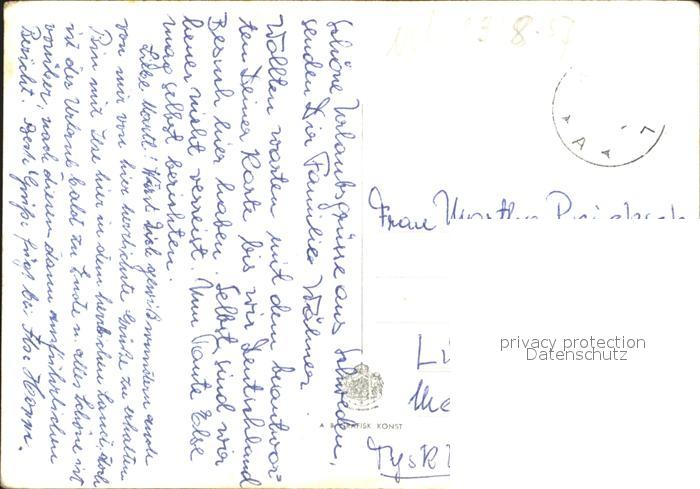 Schöne Urlaubsgrüsse aus Schweden,
senden Dir Familie
Wollten warten mit dem beantwor-
ten Deiner Karte bis wir Deutschland
Besuch hier haben. Selbst sind wir
heuer nicht verreist. Nun Tante Else
mag selbst berichten.
Liebe Martl! Wirst Dich gewiß wundern auch
von mir von hier herzlichste Grüße zu erhalten.
Bin mit Ilse hier in dem herrlichen Land, doch
ist der Urlaub bald zu Ende u. alles Schöne ist
vorüber, nach diesem dann ausführlichen
Bericht. Herzl. Grüße
Frau Martha
Lü
Me
Tysk
A B GRAFISK KONST
A
privacy protection
Datenschutz